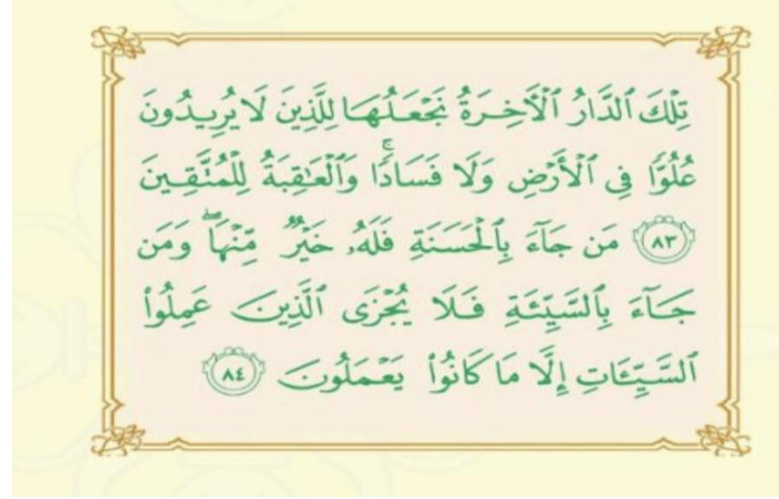 تِلْكَ ٱلدَّارُ ٱلْأَخِرَةُ نَجْعَلُهَا لِلَّذِينَ لَا يُرِيدُونَ
عُلُوًّا فِى ٱلْأَرْضِ وَلَا فَسَادًا ۚ وَٱلْعَٰقِبَةُ لِلْمُتَّقِينَ
٨٣ مَن جَآءَ بِٱلْحَسَنَةِ فَلَهُۥ خَيْرٌ مِّنْهَا ۖ وَمَن
جَآءَ بِٱلسَّيِّئَةِ فَلَا يُجْزَى ٱلَّذِينَ عَمِلُوا۟
ٱلسَّيِّـَٔاتِ إِلَّا مَا كَانُوا۟ يَعْمَلُونَ ٨٤